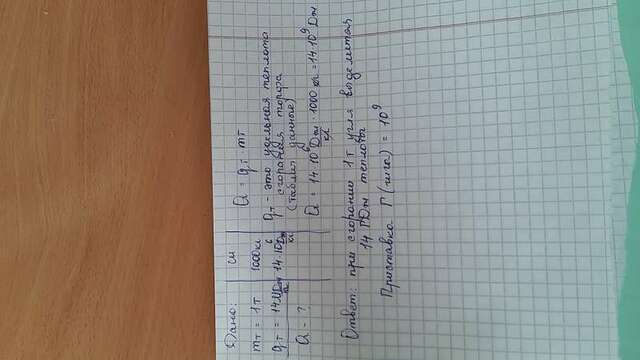 Дано:
СИ
mт = 1т
1000кг
qт = 14МДж/кг
14·10⁶Дж/кг
Q - ?
Q = qт · mт
qт - это удельная теплота
сгорания торфа
(таблич данные)
Q = 14·10⁶ Дж/кг · 1000 кг = 14·10⁹ Дж
Ответ: при сгорании 1т угля выделится
14 ГДж теплоты
Приставка Г (гига) = 10⁹